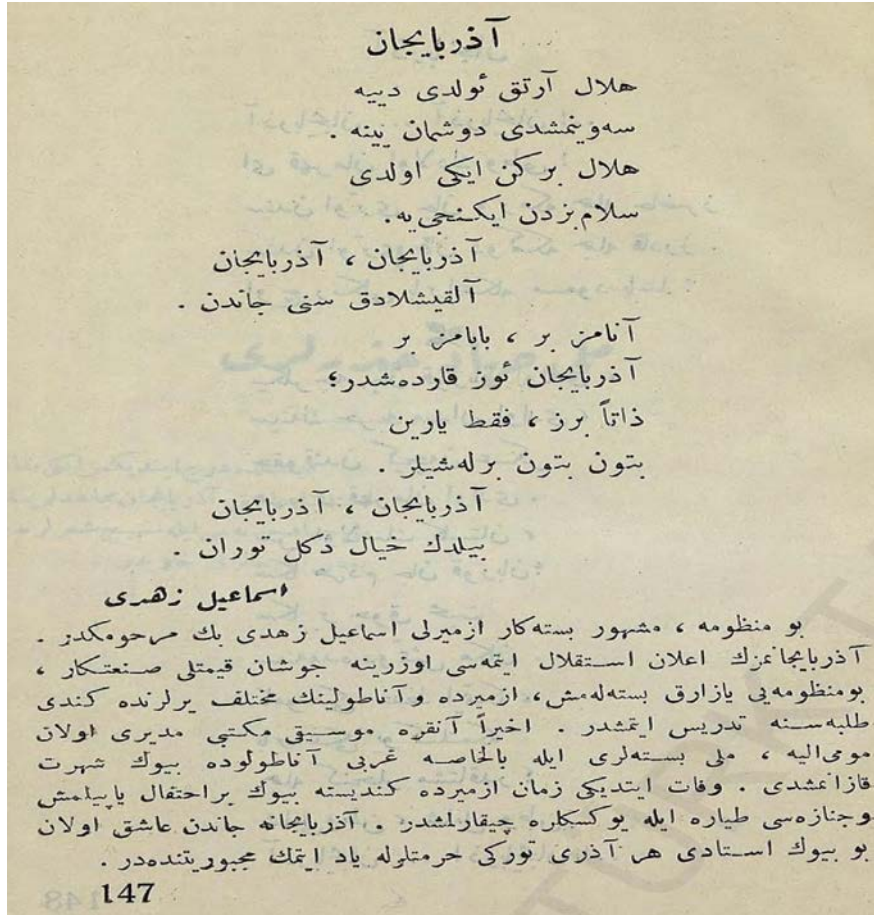 آذربایجان
هلال آرتق ئولدی دییه
سەوینمشدی دوشمان یینه .
هلال بركن ایكی اولدی
سلام بزدن ایكنجی یه .
آذربایجان ، آذربایجان
آلقیشلادق سنی جاندن .
آنامز بر ، بابامز بر
آذربایجان ئوز قاردەشدر؛
ذاتاً برز ، فقط یارین
بتون بتون برلەشیلر .
آذربایجان ، آذربایجان
بیلدك خیال دكل توران .
اسماعیل زهدی
بو منظومه ، مشهور بستەكار ازمیرلی اسماعیل زهدی بك مرحومكدر .
آذربایجانمزك اعلان استقلال ایتمەسی اوزرینه جوشان قیمتلی صنعتكار ،
بومنظومەیی یازارق بستەلەمش ، ازمیرده وآناطولینك مختلف یرلرنده كندی
طلبەسنه تدریس ایتمشدر . اخیراً آنقره موسیقی مكتبی مدیری اولان
مومی‌الیه ، ملی بستەلری ایله بالخاصه غربی آناطولوده بیوك شهرت
قازانمشدی . وفات ایتدیكی زمان ازمیرده كندیسنه بیوك براحتفال یاپیلمش
وجنازەسی طیاره ایله یوكسكلره چیقارلمشدر . آذربایجانه جاندن عاشق اولان
بو بیوك استادی هر آذری توركی حرمتلرله یاد ایتمك مجبوریتندەدر .
147